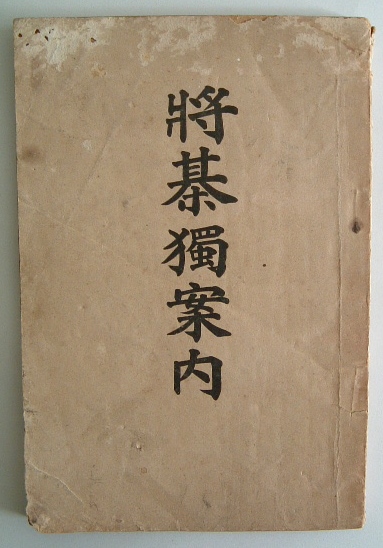 將棊獨案内